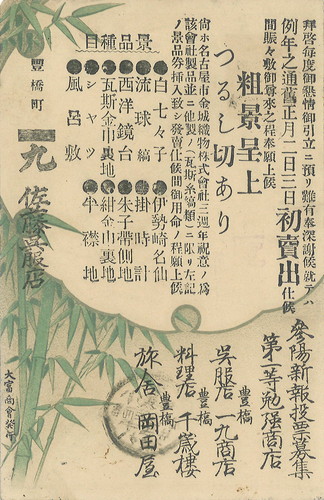 拝啓毎度御懇情御引立ニ預り難有奉深謝候就テハ
例年之通舊正月二日三日初賣出仕候
間賑々敷御尊来之程奉願上候
粗景呈上
つるし切あり
尚ホ名古屋市金城織物株式會社三週年祝意ノ為
該會社製品並ニ他製ノ(瓦斯糸縞類)ニ限リ左記
ノ景品券挿入致シ發賣仕候間御用命ノ程願上候
景品種目
●白七々子 ●伊勢崎名仙
●琉球縞 ●掛時計
●西洋鏡台 ●朱子帶側地
●瓦斯金巾裏地 ●紺金巾裏地
●シャツ ●半襟地
●風呂敷
豊橋町
九 佐藤呉服店
參陽新報投票募集
第一等勉强商店
豊橋
呉服店 一九商店
豊橋
料理店 千歳樓
豊橋
旅舍 岡田屋
大富商會發行